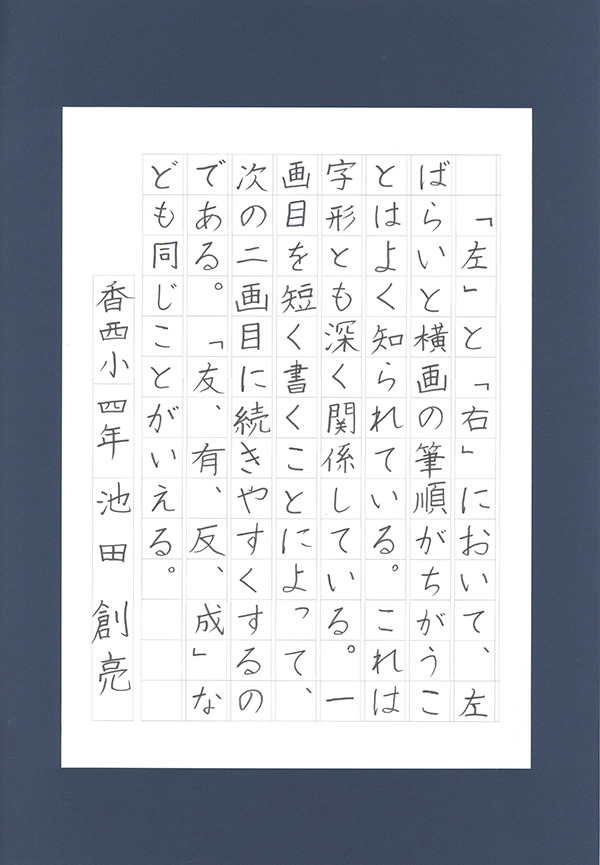 「左」と「右」において、左
ばらいと横画の筆順がちがうこ
とはよく知られている。これは
字形とも深く関係している。一
画目を短く書くことによって、
次の二画目に続きやすくするの
である。「友、有、反、成」な
ども同じことがいえる。
香西小四年 池田創亮